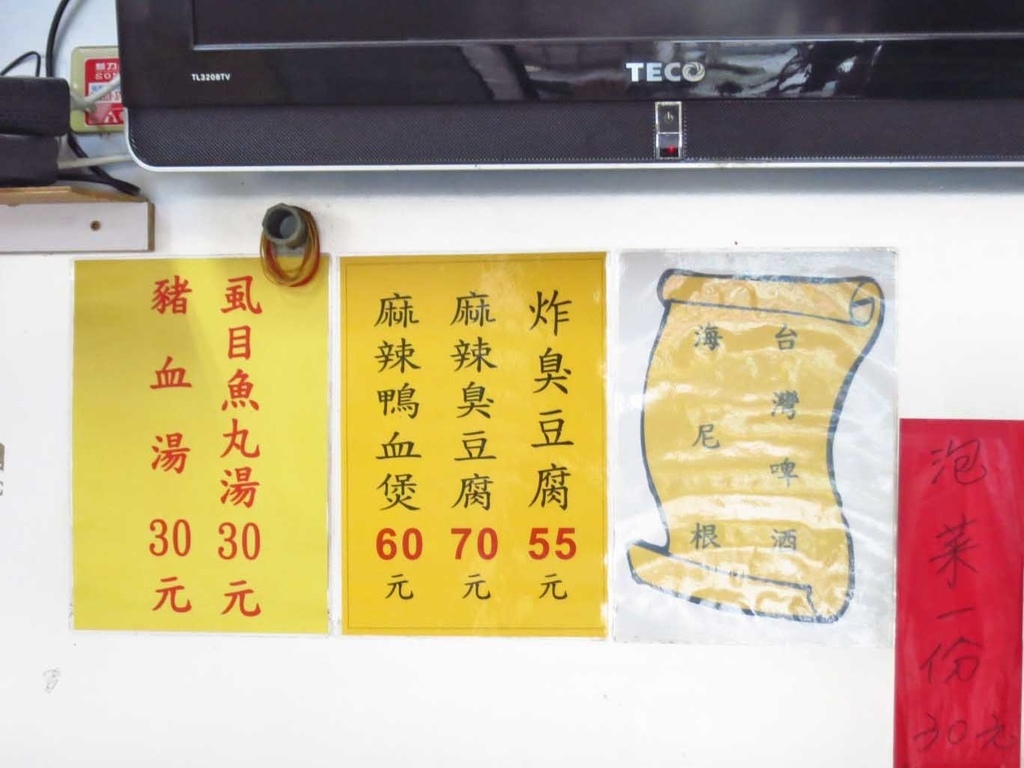 TL3208TV
TECO
虱目魚丸湯30元
豬血湯30元
炸臭豆腐55元
麻辣臭豆腐70元
麻辣鴨血煲60元
台灣啤酒
海尼根
泡菜一份30元